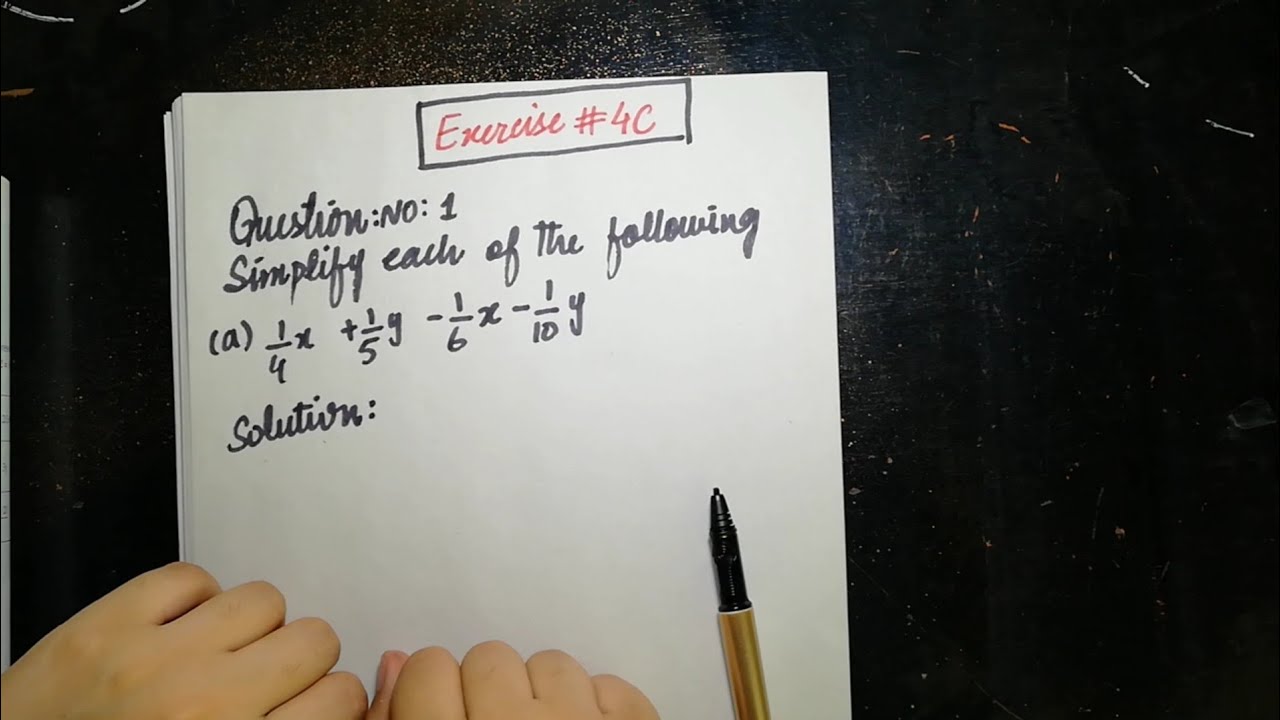 Exercise #4C
Question:NO: 1
Simplify each of the following
(a) 1/4 x + 1/5 y - 1/6 x - 1/10 y
Solution: